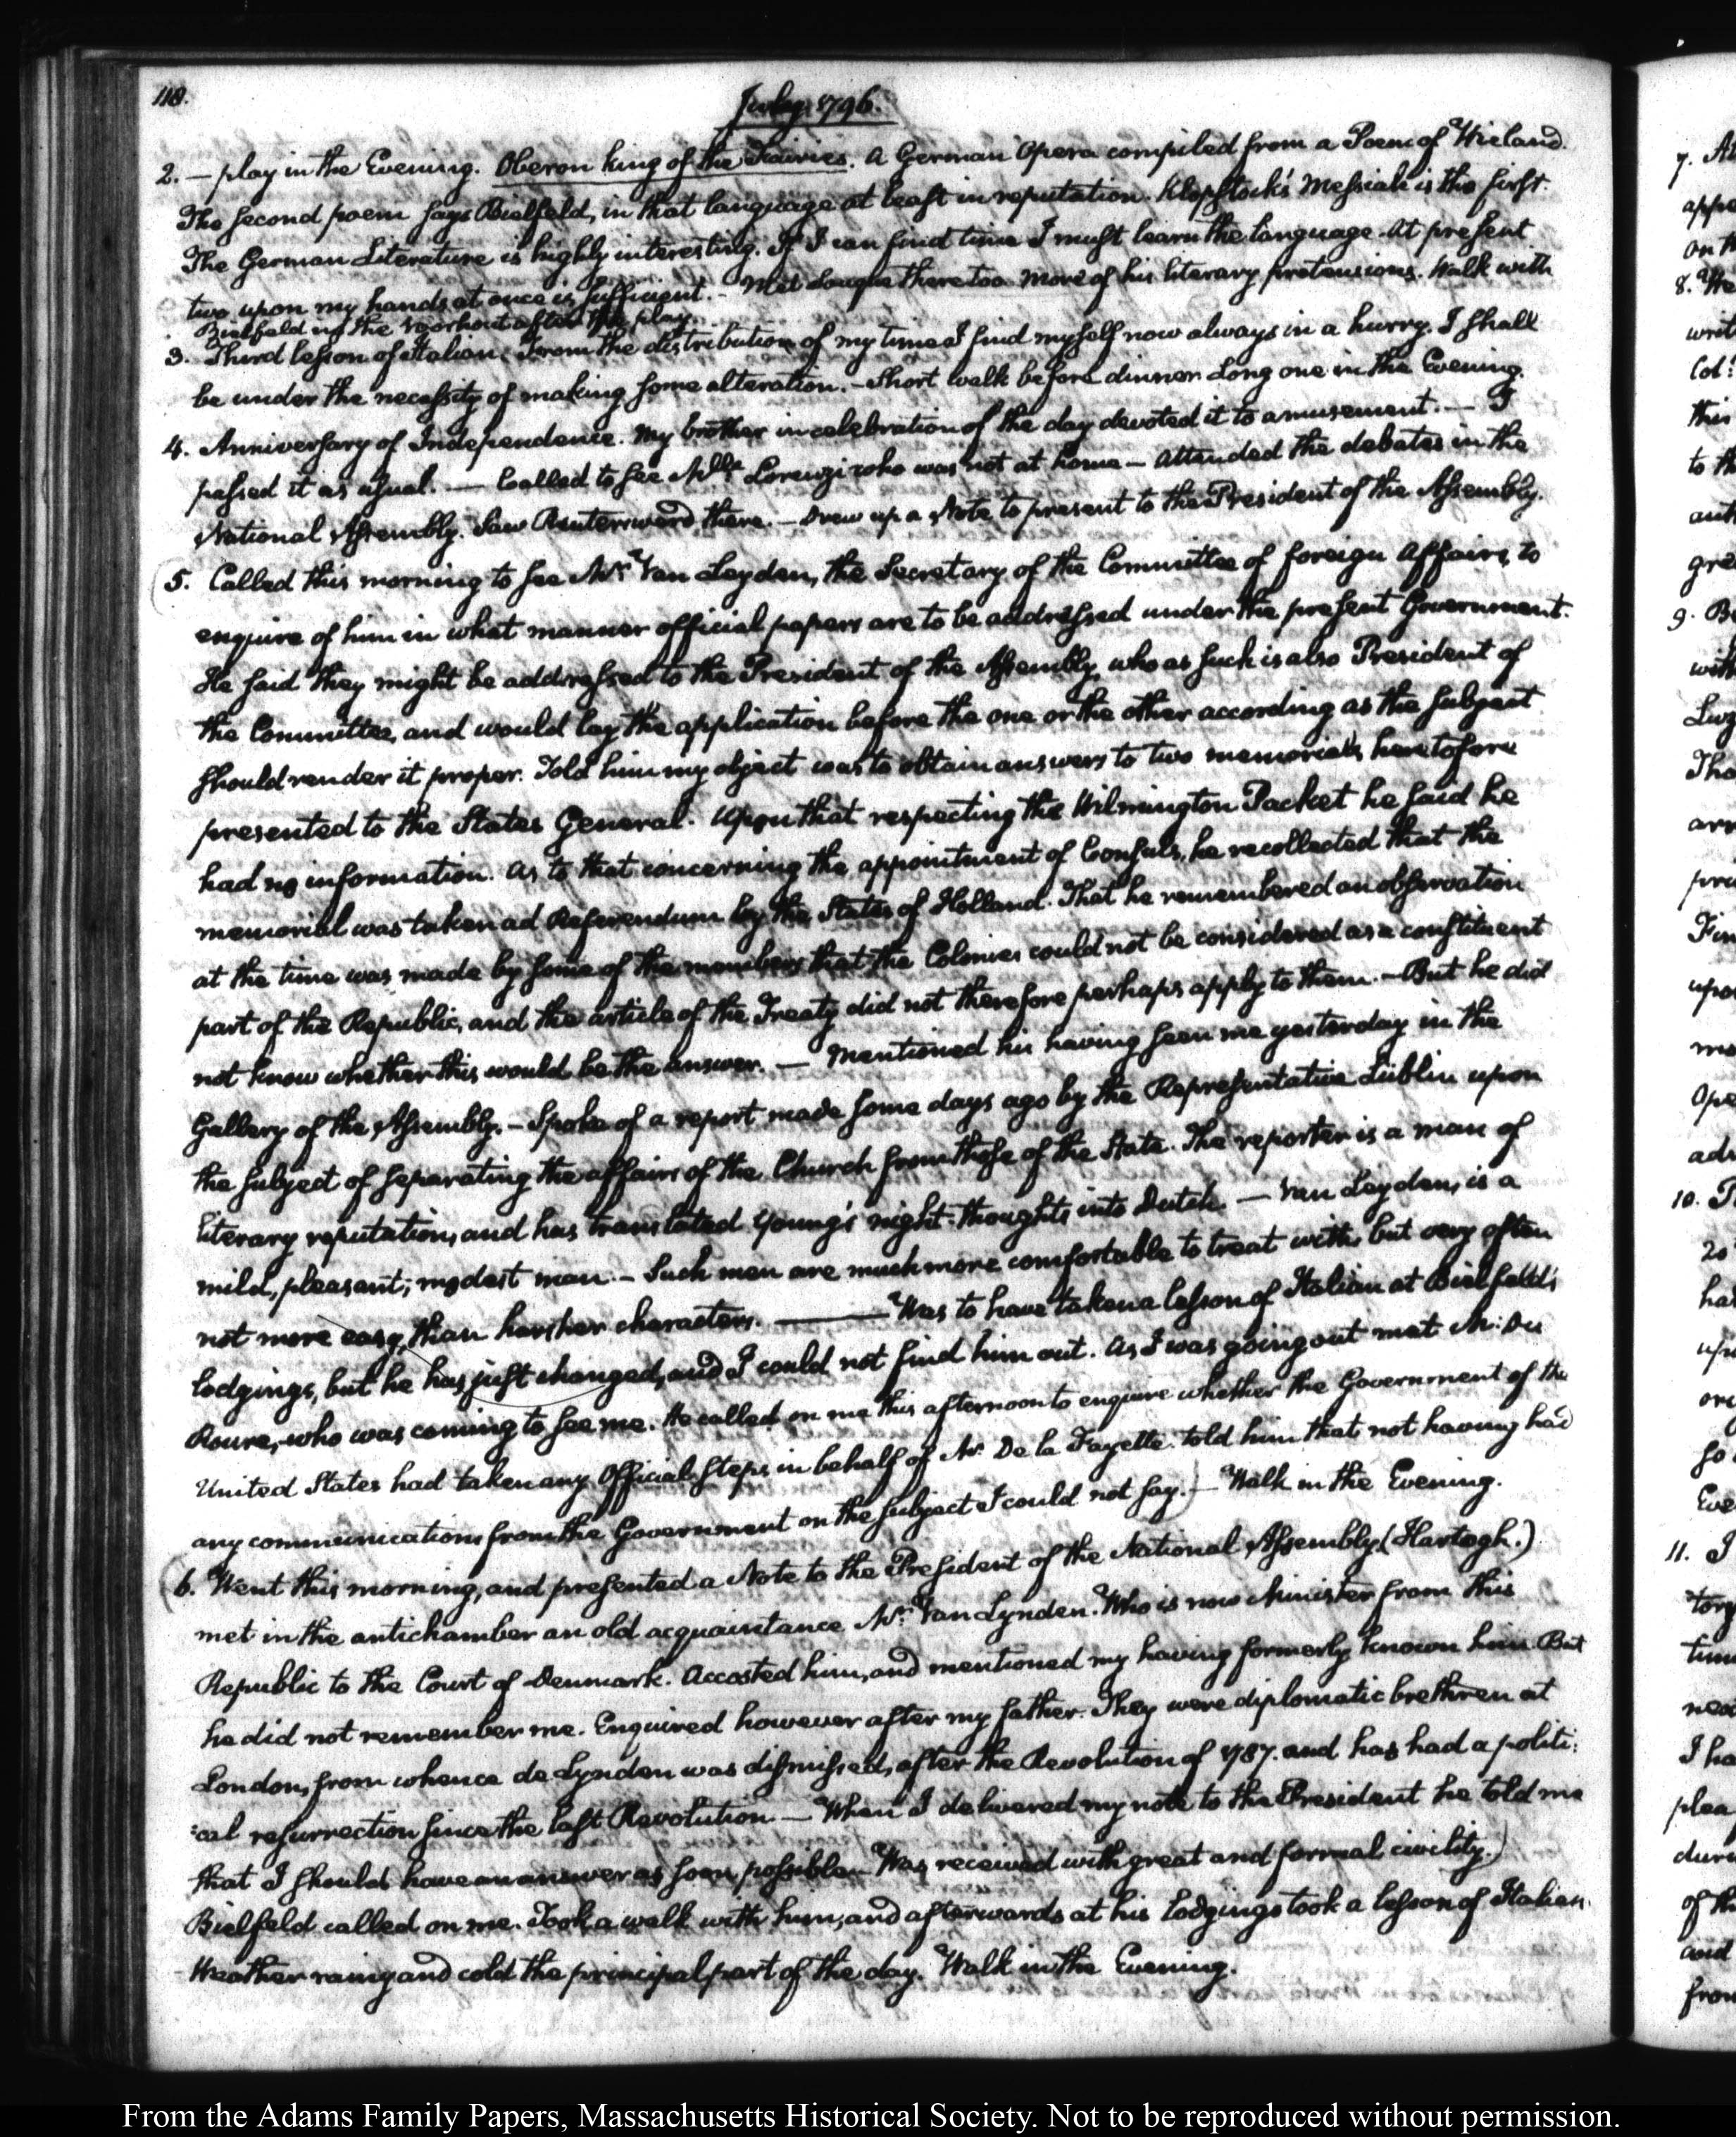 118.
July. 1796.
2. — play in the Evening. Oberon king of the Fairies. A German Opera compiled from a Poem of Wieland.
The second poem says Bielfeld, in that language at least in reputation. Klopstock's Messiah is the first.
The German Literature is highly interesting. If I can find time I must learn the language. At present
two upon my hands at once is sufficient. — Met there too more of his literary pretensions. Walk with
Bielfeld in the Voorhout after the play.
3. Third lesson of Italian. From the distribution of my time I find myself now always in a hurry. I shall
be under the necessity of making some alteration. — Short walk before dinner. Long one in the Evening.
4. Anniversary of Independence. My brother in celebration of the day devoted it to amusement. — I
passed it as usual. — Called to see Mlle. Lorenzi who was not at home — Attended the debates in the
National Assembly. Saw Reutersward there. — Drew up a Note to present to the President of the Assembly.
5. Called this morning to see Mr: Van Leyden, the Secretary of the Committee of foreign Affairs, to
enquire of him in what manner official papers are to be addressed under the present Government.
He said they might be addressed to the President of the Assembly, who as such is also President of
the Committee, and would lay the application before the one or the other according as the subject
should render it proper. Told him my object was to obtain answers to two memorials heretofore
presented to the States General. Upon that respecting the Wilmington Packet he said he
had no information. As to that concerning the appointment of Consuls, he recollected that the
memorial was taken ad Referendum by the States of Holland. That he remembered an observation
at the time was made by some of the members that the Colonies could not be considered as a constituent
part of the Republic, and the article of the Treaty did not therefore perhaps apply to them. — But he did
not know whether this would be the answer. — Mentioned his having seen me yesterday in the
Gallery of the Assembly. — Spoke of a report made some days ago by the Representative Lublin upon
the subject of separating the affairs of the Church from those of the State. The reporter is a man of
literary reputation, and has translated Young's night-thoughts into Dutch. — Van Leyden, is a
mild, pleasant, modest man. — Such men are much more comfortable to treat with, but very often
not more easy, than harsher characters. — Was to have taken a lesson of Italian at Bielfeld's
lodgings, but he has just changed, and I could not find him out. As I was going out met Mr: Du
Roure, who was coming to see me. He called on me this afternoon to enquire whether the Government of the
United States had taken any Official steps in behalf of Mr. De la Fayette. told him that not having had
any communications from the Government on the subject I could not say. — Walk in the Evening.
6. Went this morning, and presented a Note to the President of the National Assembly. (Hartogh.)
met in the antichamber an old acquaintance Mr: Van Lynden. Who is now Minister from this
Republic to the Court of Denmark. Accosted him, and mentioned my having formerly known him. But
he did not remember me. Enquired however after my father. They were diplomatic brethren at
London, from whence de Lynden was dismissed, after the Revolution of 1787. and has had a politi:
:cal resurrection since the last Revolution — When I delivered my note to the President he told me
that I should have an answer as soon possible. — Was received with great and formal civility.)
Bielfeld called on me. Took a walk with him, and afterwards at his lodgings took a lesson of Italian.
Weather rainy and cold the principal part of the day. Walk in the Evening.
From the Adams Family Papers, Massachusetts Historical Society. Not to be reproduced without permission.